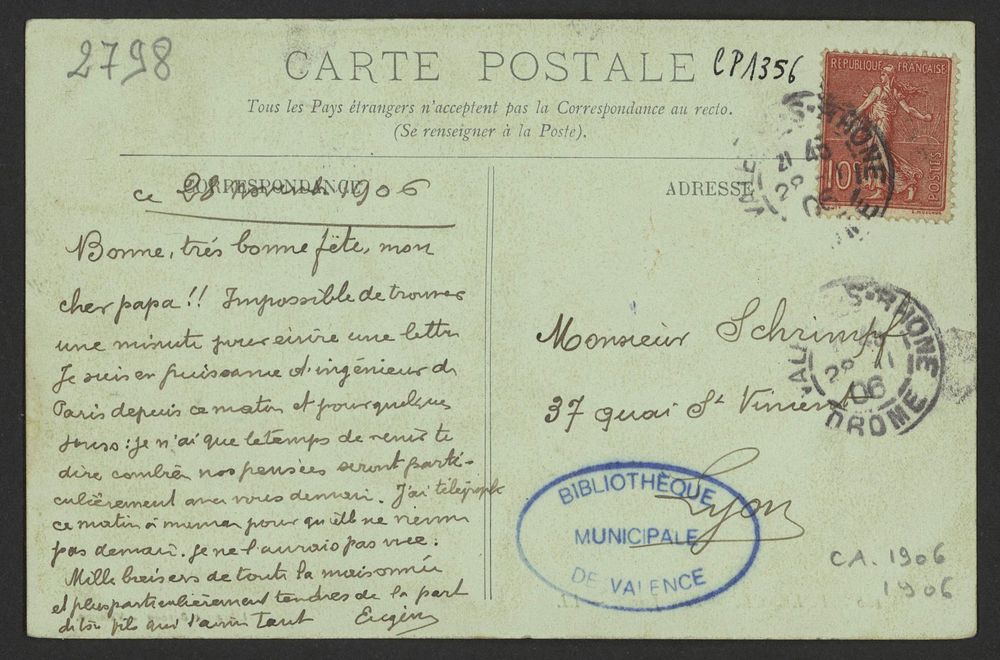 2798
CARTE POSTALE
CP1356
Tous les Pays étrangers n'acceptent pas la Correspondance au recto.
(Se renseigner à la Poste).
REPUBLIQUE FRANÇAISE
10c
POSTES
CORRESPONDANCE
ce 28 novemb 1906
Bonne, très bonne fête, mon
cher papa !! Impossible de trouver
une minute pour écrire une lettre
Je suis en puissance d'ingénieur de
Paris depuis ce matin et pour quelques
jours : je n'ai que le temps de venir te
dire combien nos pensées seront parti-
culièrement avec vous demain. J'ai télégraphié
ce matin à maman pour qu'elle ne vienne
pas demain. Je ne l'aurais pas vue.
Mille baisers de toute la maisonnée
et plus particulièrement tendres de la part
de ton fils qui t'aime tant Eugène
ADRESSE
Monsieur Schrimpf
37 quai St Vincent
Lyon
VALENCE-S-RHONE
21 45
28 11
06
DROME
VALENCE-S-RHONE
28 11
06
DROME
BIBLIOTHÈQUE
MUNICIPALE
DE VALENCE
CA. 1906
1906